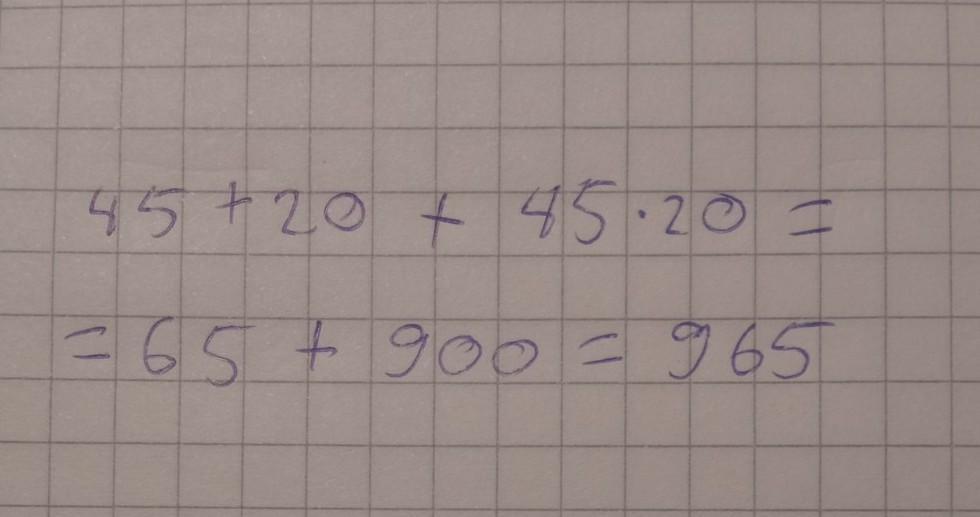 45 + 20 + 45 · 20 =
= 65 + 900 = 965